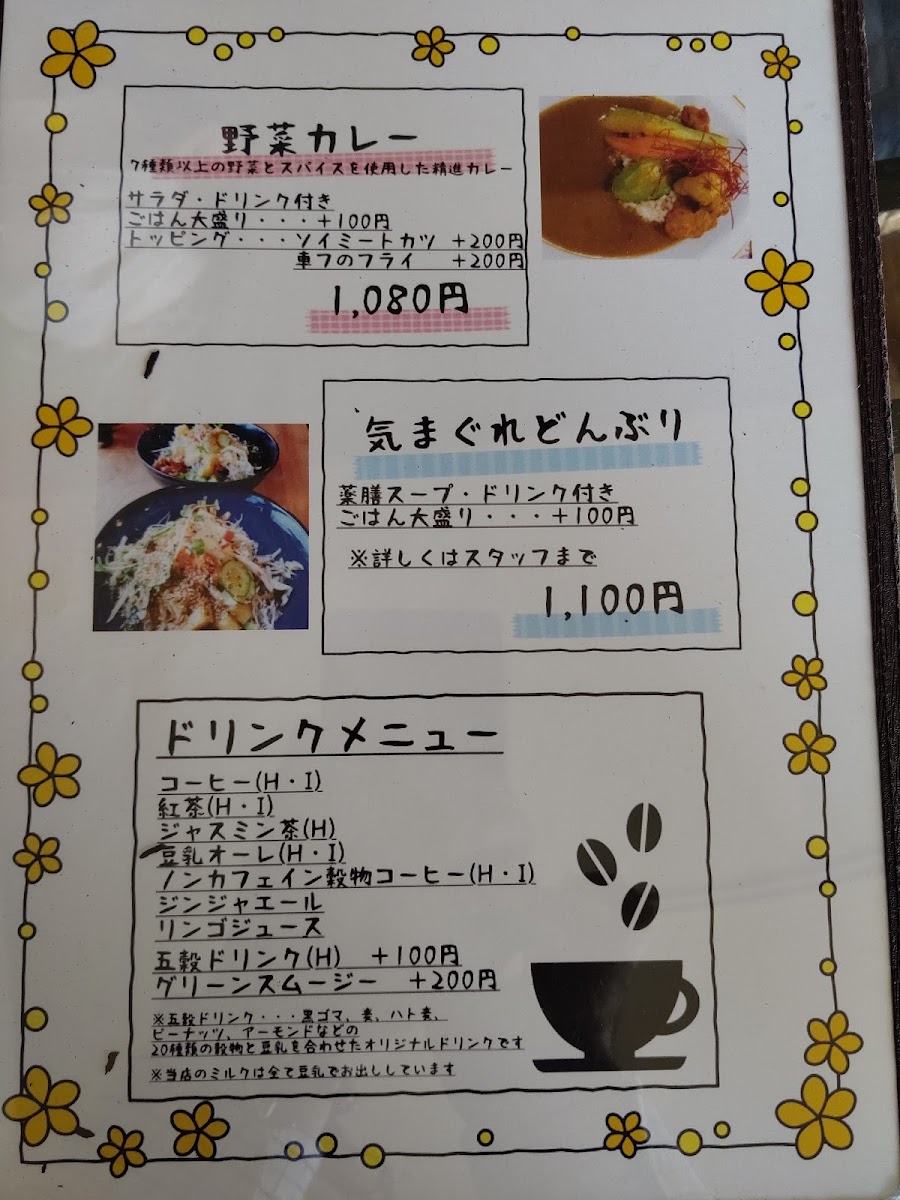 野菜カレー
7種類以上の野菜とスパイスを使用した精進カレー
サラダ・ドリンク付き
ごはん大盛り・・・+100円
トッピング・・・ソイミートカツ +200円
車フのフライ +200円
1,080円
気まぐれどんぶり
薬膳スープ・ドリンク付き
ごはん大盛り・・・+100円
※詳しくはスタッフまで
1,100円
ドリンクメニュー
コーヒー(H・I)
紅茶(H・I)
ジャスミン茶(H)
豆乳オーレ(H・I)
ノンカフェイン穀物コーヒー(H・I)
ジンジャエール
リンゴジュース
五穀ドリンク(H) +100円
グリーンスムージー +200円
※五穀ドリンク・・・黒ゴマ、麦、ハト麦、
ピーナッツ、アーモンドなどの
20種類の穀物と豆乳を合わせたオリジナルドリンクです
※当店のミルクは全て豆乳でお出ししています